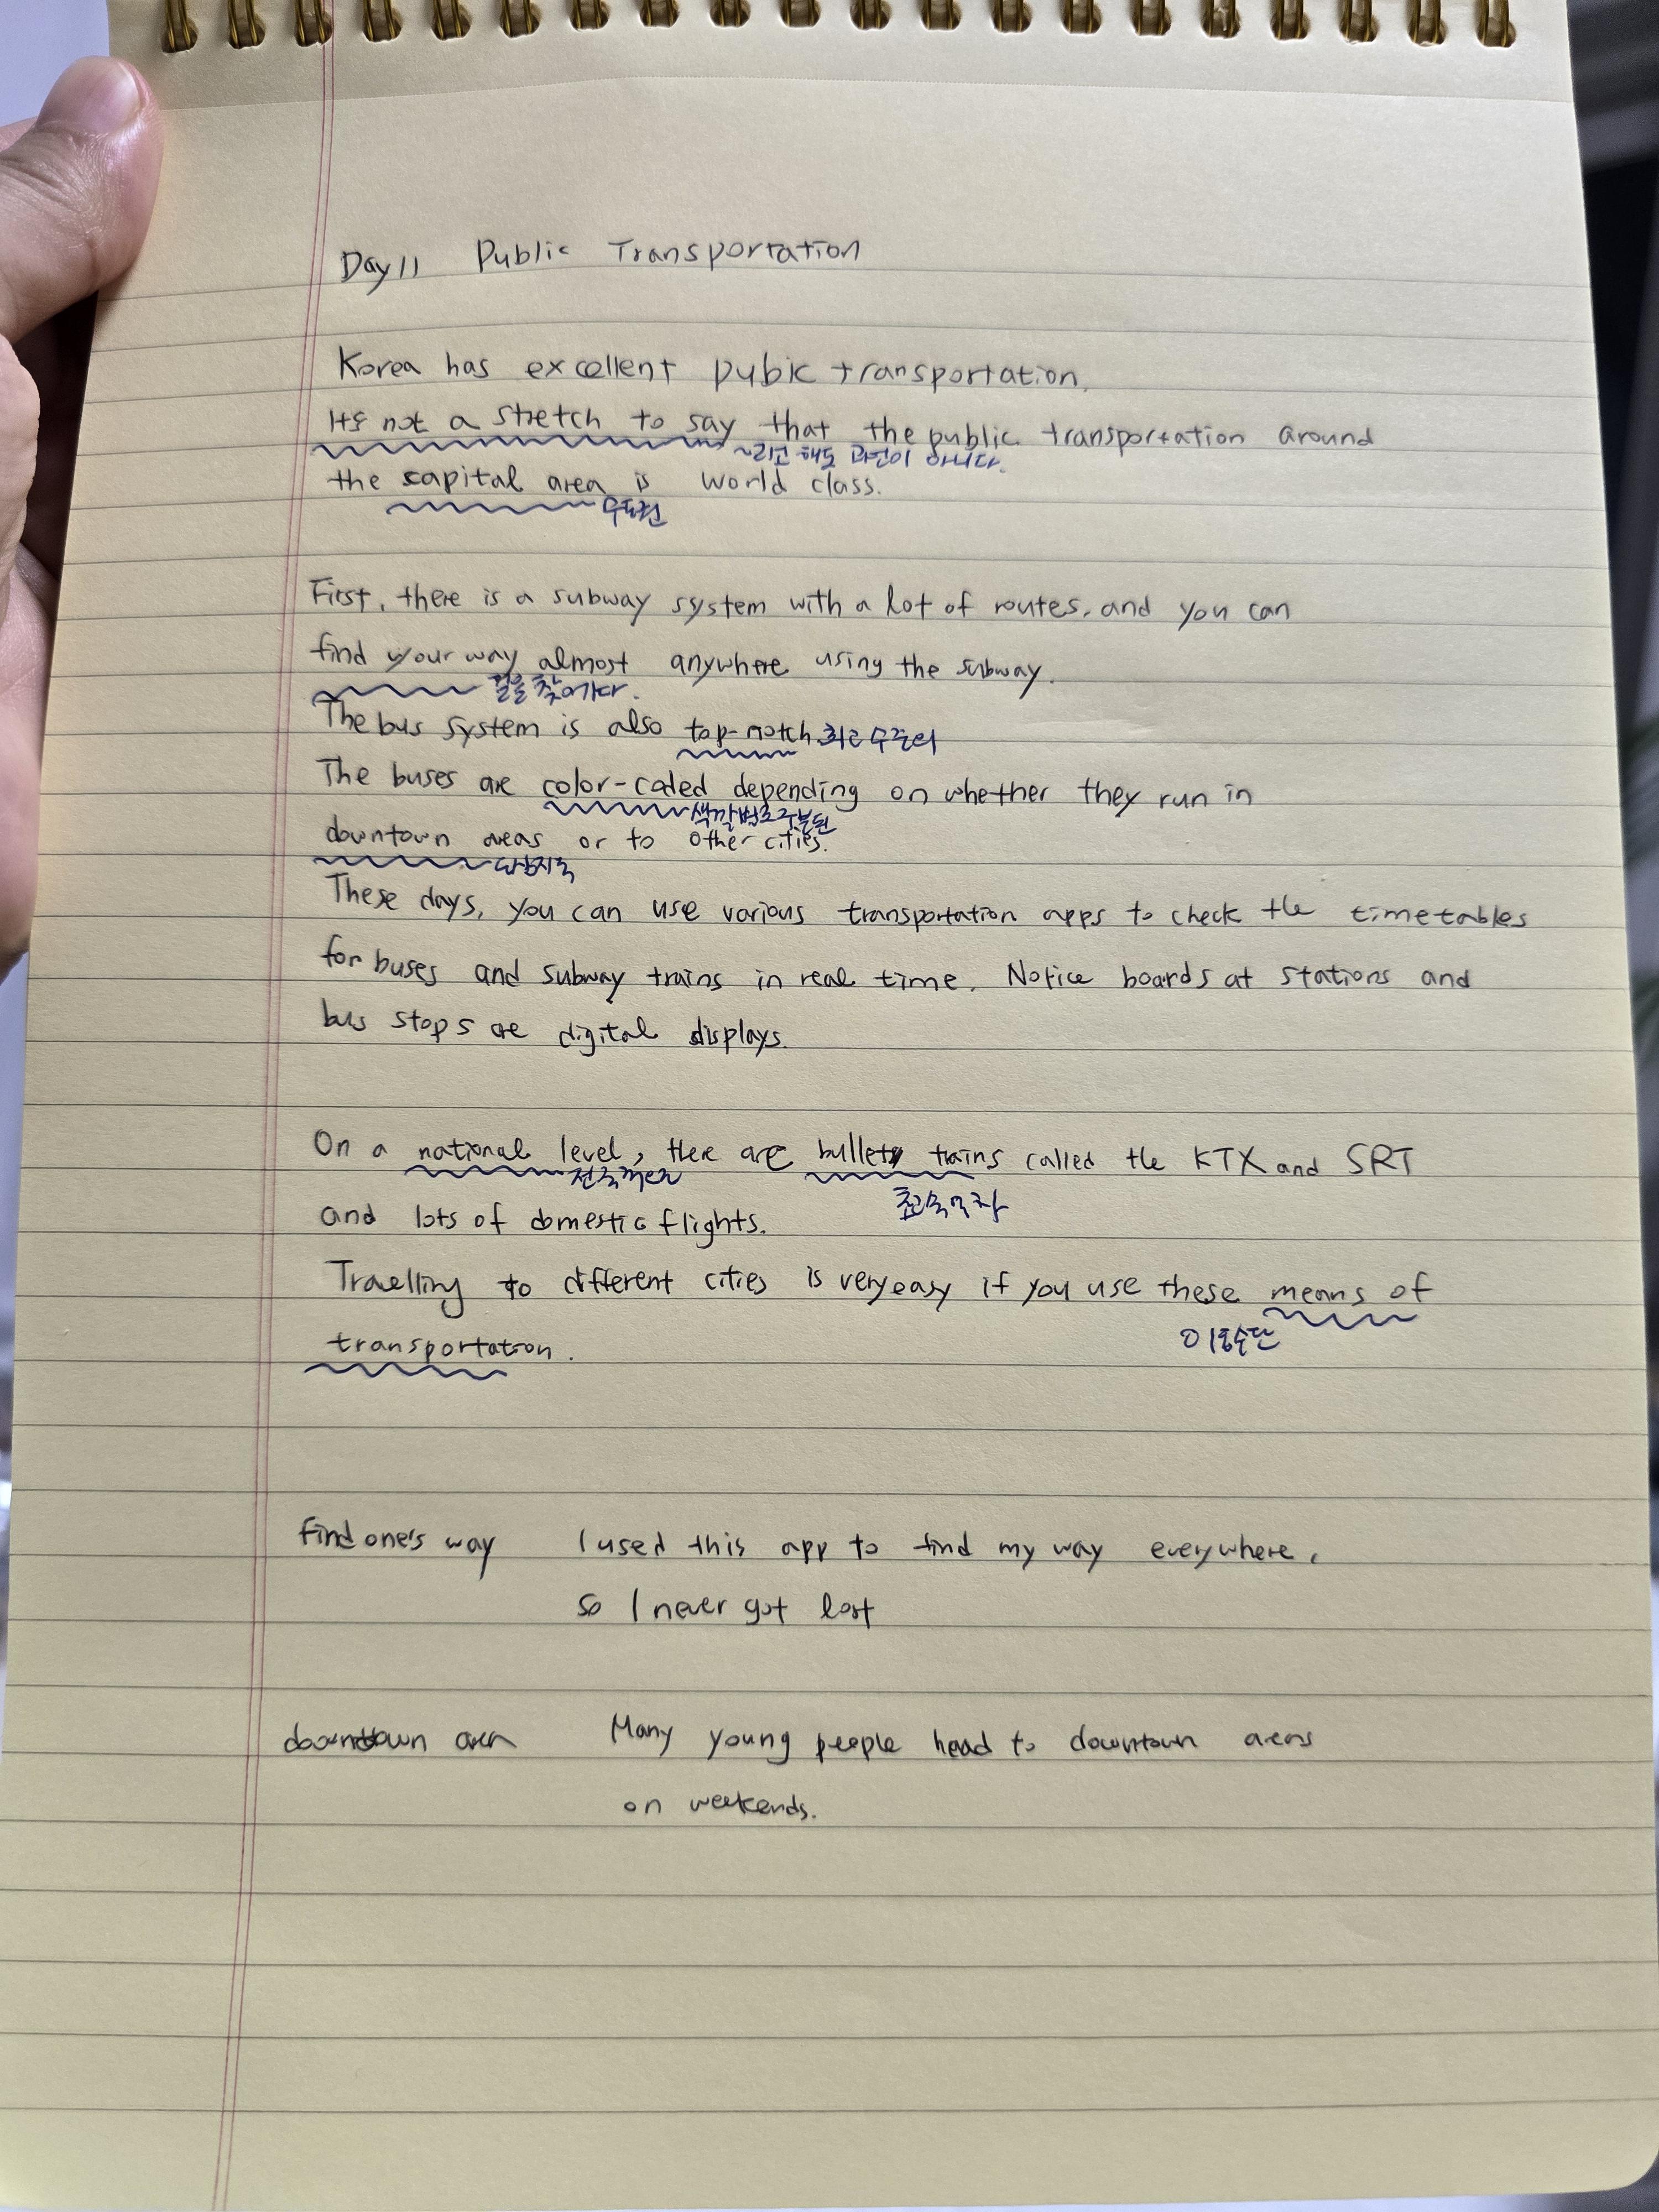 Day 11 Public Transportation
Korea has excellent pubic transportation.
It's not a stretch to say that the public transportation around
~라고 해도 과언이 아니다.
the capital area is world class.
수도권
First, there is a subway system with a lot of routes, and you can
find your way almost anywhere using the subway.
길을 찾아가다.
The bus system is also top-notch. 최고 수준의
The buses are color-coded depending on whether they run in
색깔별로 구분된
downtown areas or to other cities.
도심지역
These days, you can use various transportation apps to check the timetables
for buses and subway trains in real time. Notice boards at stations and
bus stops are digital displays.
On a national level, there are bullet trains called the KTX and SRT
전국적으로
초고속열차
and lots of domestic flights.
Travelling to different cities is very easy if you use these means of
이동수단
transportation.
find one's way I used this app to find my way everywhere,
so I never got lost
downtown area Many young people head to downtown areas
on weekends.